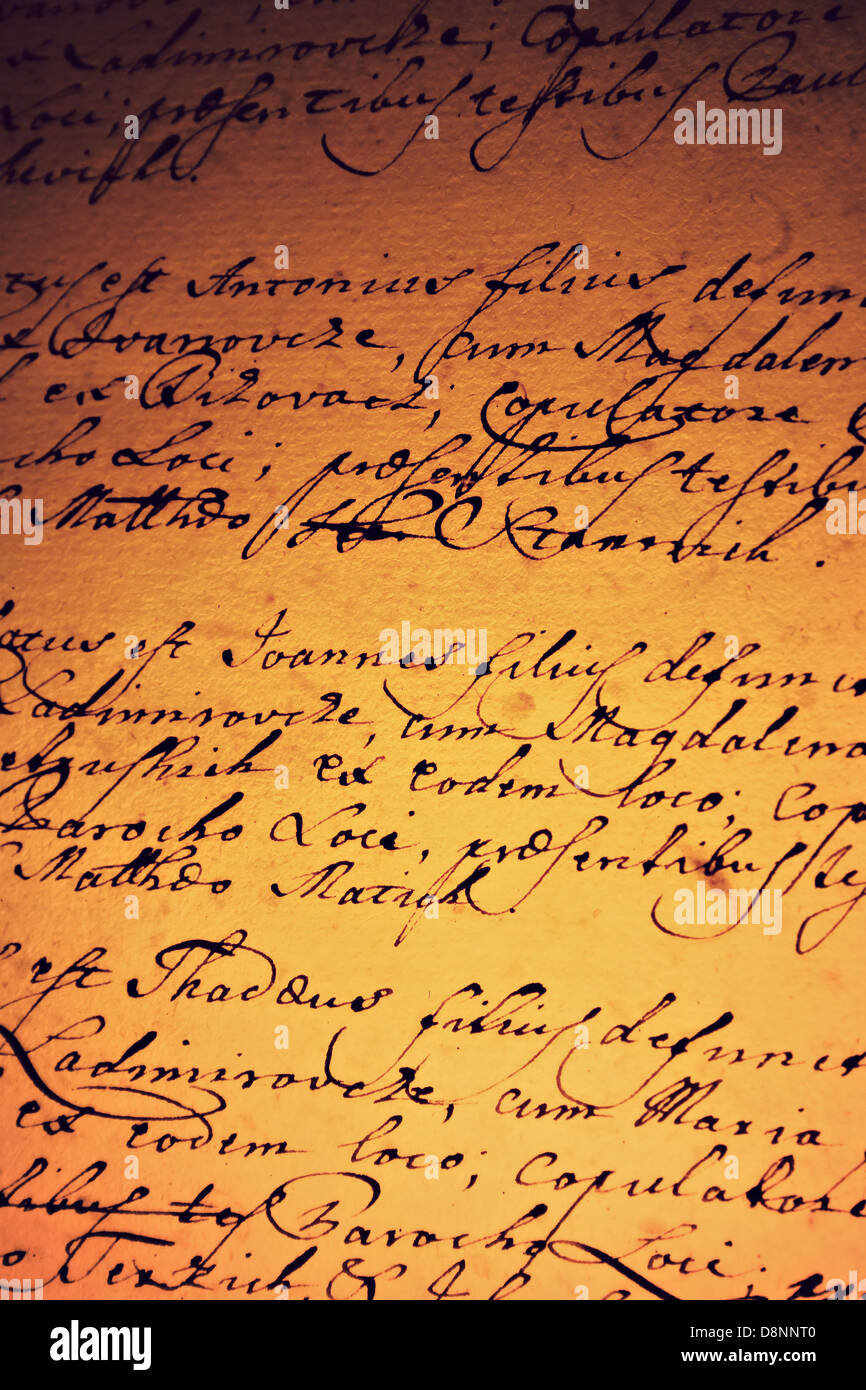 Ladimirovcze; Copulatore
Loci; præsentibus testibus Paul
chevich.
est Antonius filius defun
Ivanovcze, cum Magdalen
ex Bizovacz; Copulatore
Parocho Loci; præsentibus testibu
Matthæo Stanovich.
latus est Joannes filius defunct
Ladimirovcze, cum Magdalena
ex eodem loco; Cop
Parocho Loci, præsentibus tes
Matthæo Matich.
est Thadæus filius defunct
Ladimirovcze, cum Maria
ex eodem loco; Copulatore
tibus tes Parocho Loci,
Terzich, &
alamy
Image ID: D8NNT0
www.alamy.com